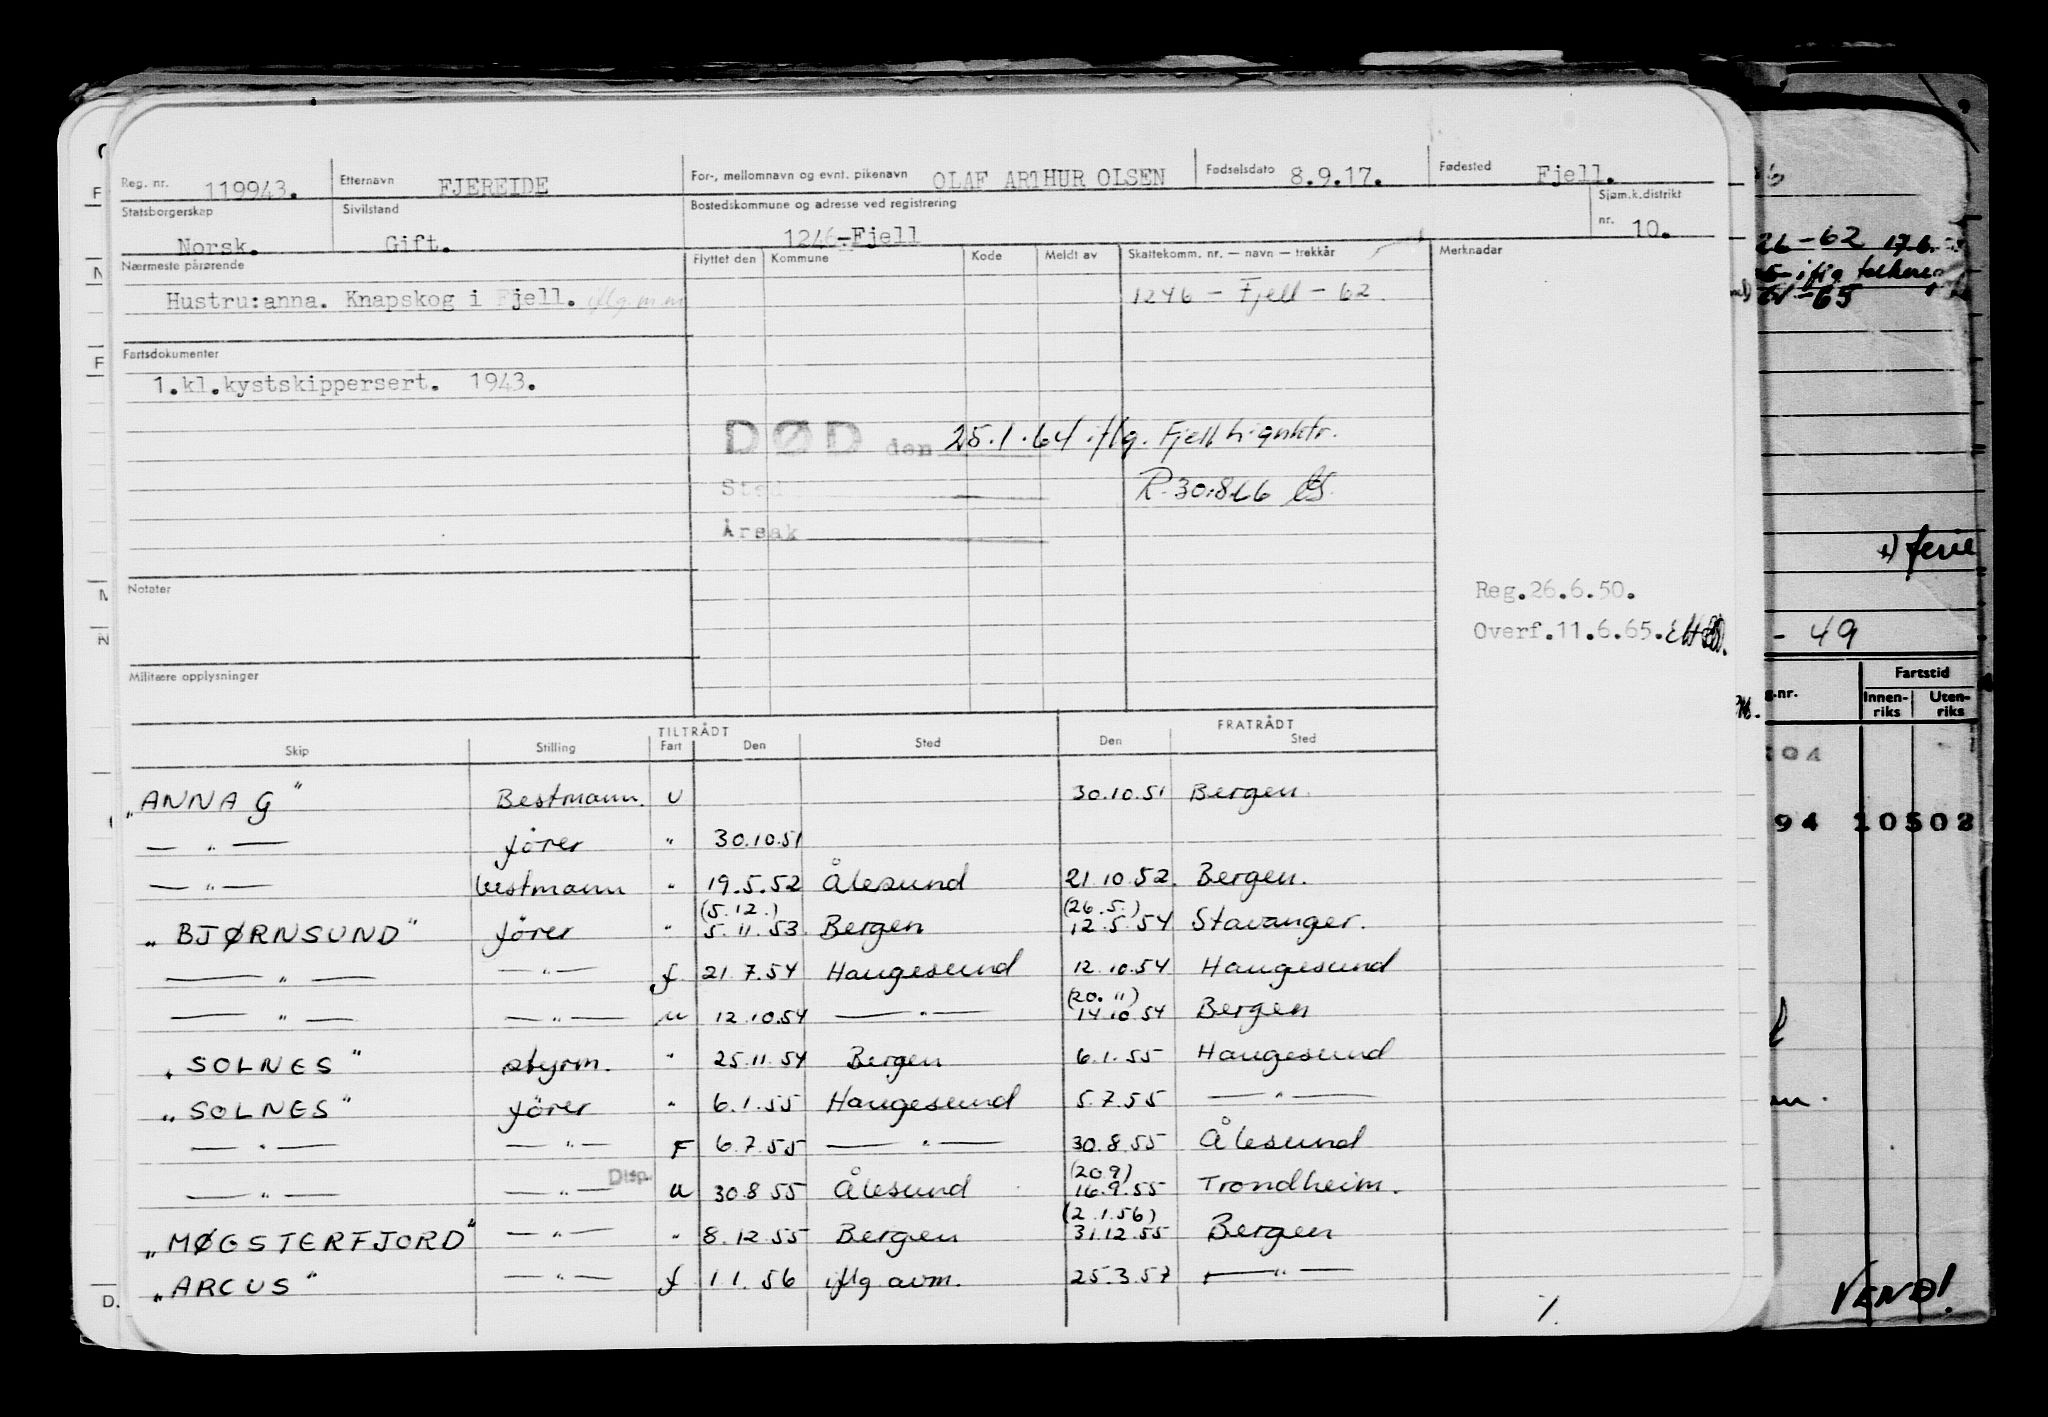 Reg. nr. 119943. Etternavn FJEREIDE For-, mellomnavn og evnt. pikenavn OLAF ARTHUR OLSEN Fødselsdato 8.9.17. Fødested Fjell.
Statsborgerskap Norsk. Sivilstand Gift. Bostedskommune og adresse ved registrering 1246-Fjell Sjøm.k.distrikt nr. 10.
Nærmeste pårørende Flyttet den Kommune Kode Meldt av Skattekomm. nr. — navn — trekkår Merknader
Hustru:anna. Knapskog i Fjell. iflg. m.m 1246 - Fjell - 62.
Fartsdokumenter
1.kl.kystskippersert. 1943.
DØD den 25.1.64 iflg. Fjell
Sted
R. 30.8.66
Årsak
Notater
Reg.26.6.50.
Overf.11.6.65.
Militære opplysninger
TILTRÅDT FRATRÅDT
Skip Stilling Fart Den Sted Den Sted
"ANNA G" Bestmann. U 30.10.51 Bergen.
— " — fører " 30.10.51
— " — bestmann " 19.5.52 Ålesund 21.10.52. Bergen.
(5.12.) (26.5.)
"BJØRNSUND" fører " 5.11.53 Bergen 12.5.54 Stavanger.
— " — — " — f 21.7.54 Haugesund 12.10.54 Haugesund
(20. ")
— " — — " — u 12.10.54 — " — 14.10.54 Bergen
"SOLNES" styrm. " 25.11.54 Bergen 6.1.55 Haugesund
"SOLNES" fører " 6.1.55 Haugesund 5.7.55 — " —
— " — — " — F 6.7.55 — " — 30.8.55 Ålesund
Disp. (20.9)
— " — — " — u 30.8.55 Ålesund 16.9.55 Trondheim.
(2.1.56)
"MØGSTERFJORD" — " — " 8.12.55 Bergen 31.12.55 Bergen
"ARCUS" — " — f 1.1.56 iflg avm. 25.3.57 — " —
./.
26 -62 17.6.
61-65
x) ferie
- 49
Fartstid
g.nr. Innen-riks Uten-riks
94 10502
VEND!